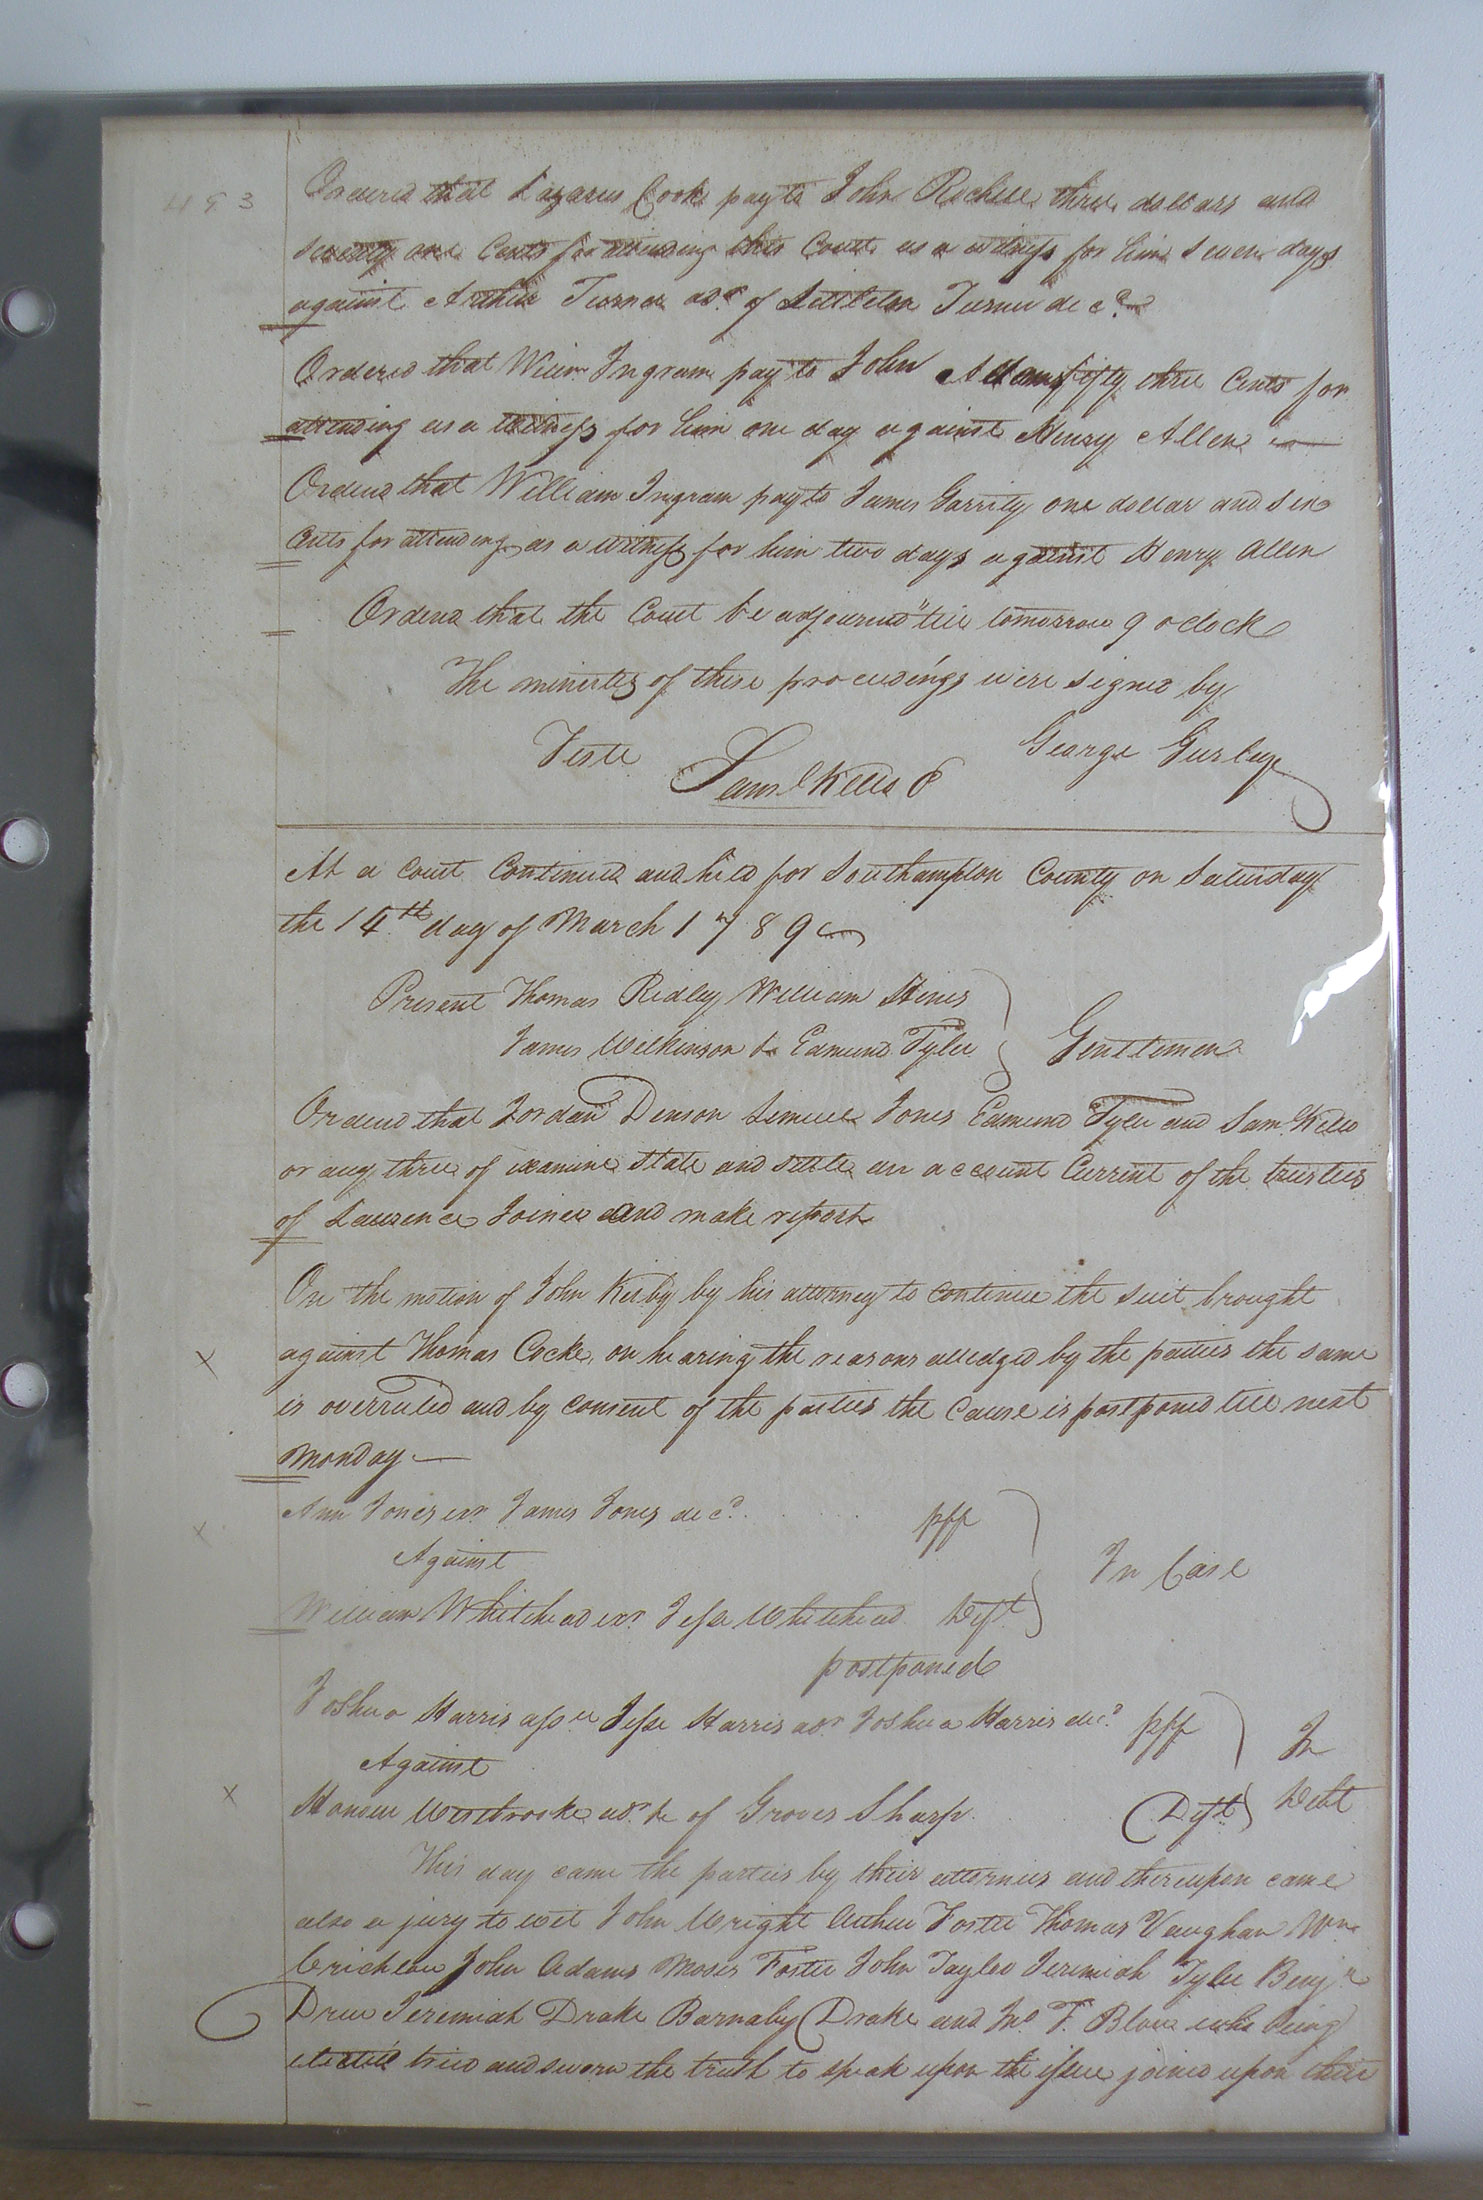 493
Ordered that Lazarus Cook pay to John Rochell three dollars and
seventy one Cents for attending this Court as a witness for him seven days
against Arthur Turner adr. of Littleton Turner decd.
Ordered that Willm Ingram pay to John Adams fifty three Cents for
attending as a witness for him one day against Henry Allen
Ordered that William Ingram pay to James Garrity one dollar and six
Cents for attending as a witness for him two days against Henry Allen
Ordered that the Court be adjourned till tomorrow 9 oclock
The minutes of these proceedings were signed by
George Gurley
Teste Saml Kello C
At a Court Continued and held for Southampton County on Saturday
the 14th day of March 1789
Present Thomas Ridley William Hines
James Wilkinson & Edmund Tyler } Gentlemen
Ordered that Jordan Denson Lemuel Jones Edmund Tyler and Saml Kello
or any three of examine state and settle an account Current of the trustees
of Laurence Joiner and make report
On the motion of John Kirby by his attorney to continue the suit brought
against Thomas Cocke, on hearing the reasons alledged by the parties the same
is overruled and by consent of the parties the Cause is postponed till next
Monday
Ann Jones exr. James Jones decd. plf
Against } In Case
William Whitehead exr. Jesse Whitehead Deft
postponed
Joshua Harris assee Jesse Harris adr Joshua Harris decd. plf } In
Against
Westbrooke adr. & of Groves Sharp Deft } Debt
This day came the parties by their attornies and thereupon came
also a jury to wit John Wright Arthur Foster Thomas Vaughan Wm
Crichlow John Adams Moses Foster John Taylor Jeremiah Tyler Benjn
Drew Jeremiah Drake Barnaby Drake and Jno. T. Blow who being
elected tried and sworn the truth to speak upon the issue joined upon their